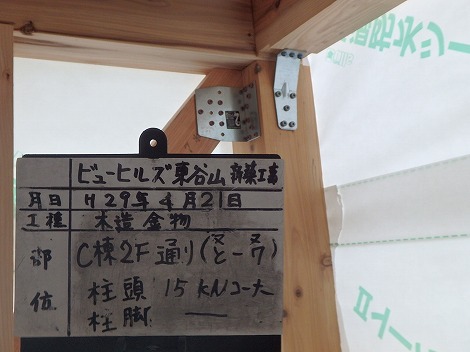 ビューヒルズ東谷山 新築工事
月日 H29年4月21日
工種 木造金物
部位 C棟2F通り(又と-又ワ)
柱頭 15KNコーナー
柱脚 ―
防水シート